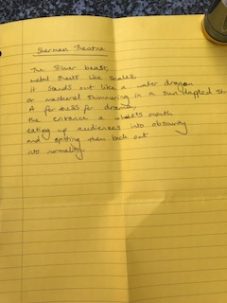 Sherman Theatre
The Silver beast,
metal sheets like scales.
it stands out like a water dragon
or mackerel shimmering in a sun dappled
A for dramа,
the entrance a whale's mouth
eating up audiences into obscurity
and spitting them back out
into normality.